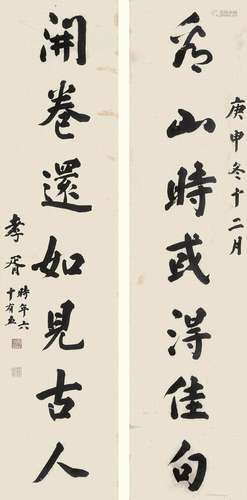 庚申冬十二月
看山時或得佳句
開卷還如見古人
孝胥
時年六
十有